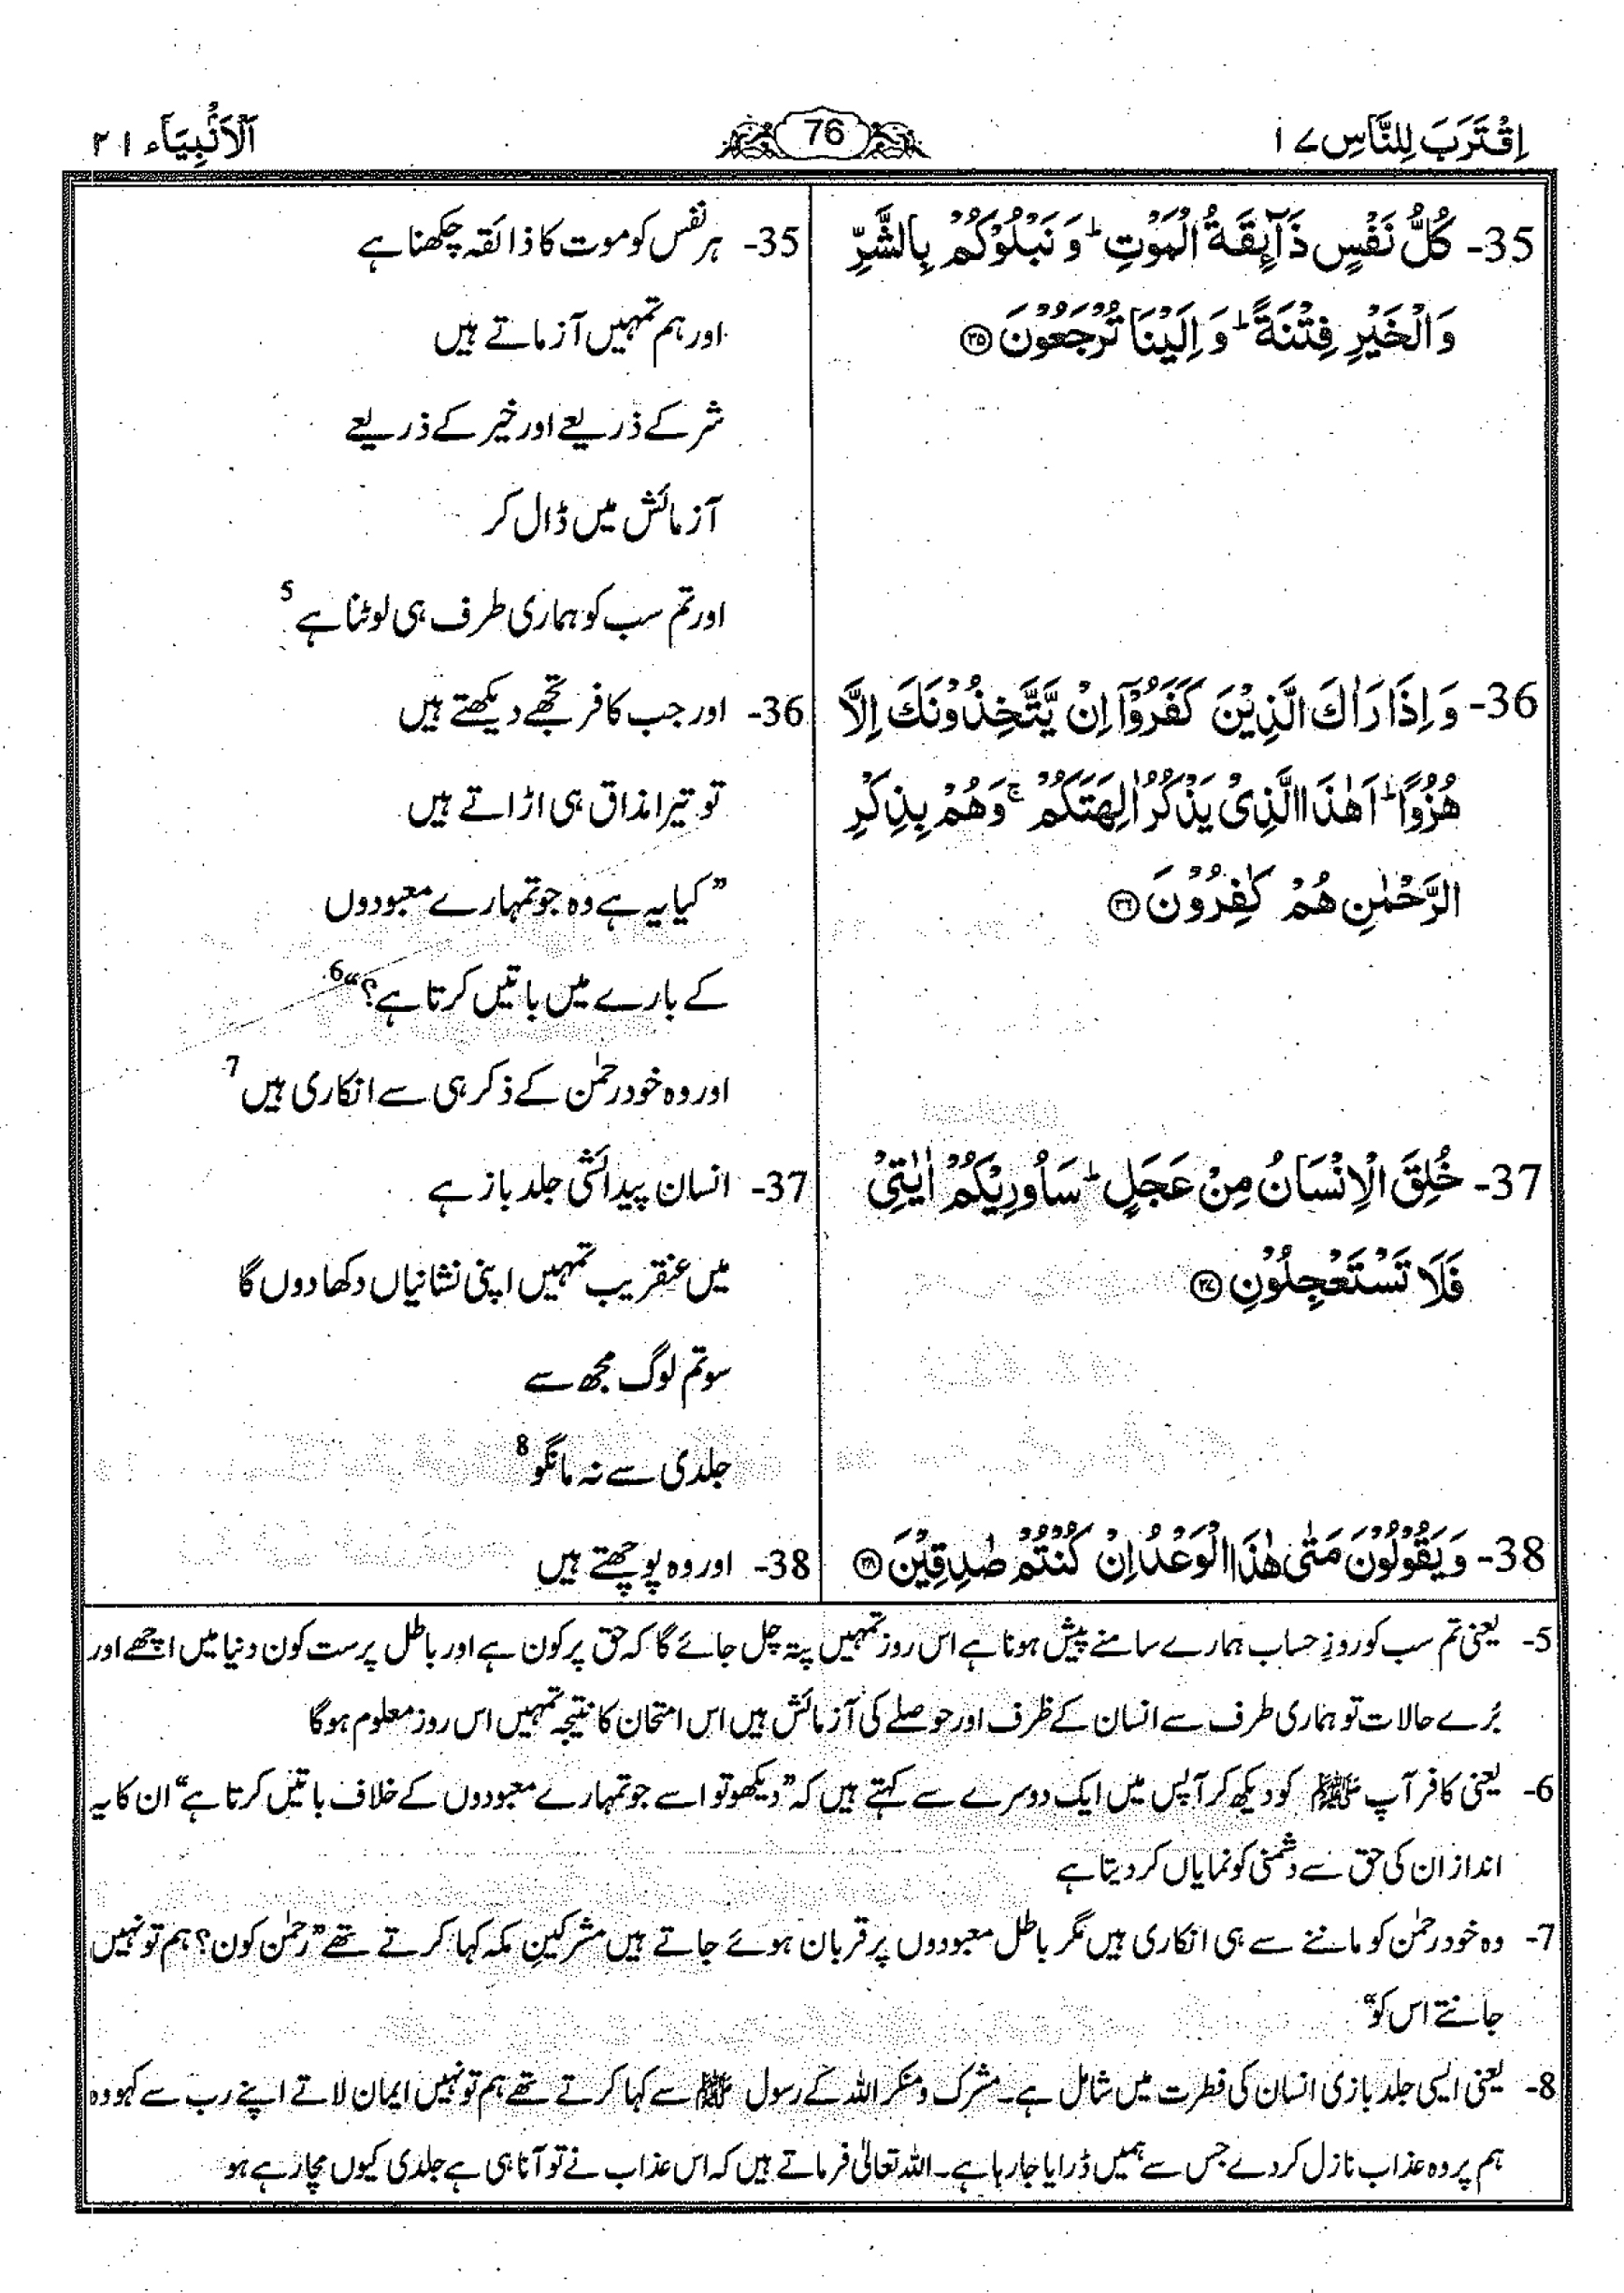 اِقْتَرَبَ لِلنَّاسِ ۱۷
76
اَلْاَنْۢبِيَآء ۲۱
35- كُلُّ نَفْسٍ ذَآىِٕقَةُ الْمَوْتِ ؕ وَ نَبْلُوْكُمْ بِالشَّرِّ
وَالْخَيْرِ فِتْنَةً ؕ وَ اِلَيْنَا تُرْجَعُوْنَ ۝۳۵
36- وَ اِذَا رَاٰكَ الَّذِيْنَ كَفَرُوْۤا اِنْ يَّتَّخِذُوْنَكَ اِلَّا
هُزُوًا ؕ اَهٰذَا الَّذِيْ يَذْكُرُ اٰلِهَتَكُمْ ۚ وَهُمْ بِذِكْرِ
الرَّحْمٰنِ هُمْ كٰفِرُوْنَ ۝۳۶
37- خُلِقَ الْاِنْسَانُ مِنْ عَجَلٍ ؕ سَاُورِيْكُمْ اٰيٰتِيْ
فَلَا تَسْتَعْجِلُوْنِ ۝۳۷
38- وَيَقُوْلُوْنَ مَتٰى هٰذَا الْوَعْدُ اِنْ كُنْتُمْ صٰدِقِيْنَ ۝۳۸
35- ہر نفس کو موت کا ذائقہ چکھنا ہے
اور ہم تمہیں آزماتے ہیں
شر کے ذریعے اور خیر کے ذریعے
آزمائش میں ڈال کر
اور تم سب کو ہماری طرف ہی لوٹنا ہے 5
36- اور جب کافر تجھے دیکھتے ہیں
تو تیرا مذاق ہی اڑاتے ہیں
”کیا یہ ہے وہ جو تمہارے معبودوں
کے بارے میں باتیں کرتا ہے؟“ 6
اور وہ خود رحمٰن کے ذکر ہی سے انکاری ہیں 7
37- انسان پیدائشی جلد باز ہے
میں عنقریب تمہیں اپنی نشانیاں دکھا دوں گا
سو تم لوگ مجھ سے
جلدی سے نہ مانگو 8
38- اور وہ پوچھتے ہیں
5- یعنی تم سب کو روزِ حساب ہمارے سامنے پیش ہونا ہے اس روز تمہیں پتہ چل جائے گا کہ حق پر کون ہے اور باطل پرست کون دنیا میں اچھے اور
بُرے حالات تو ہماری طرف سے انسان کے ظرف اور حوصلے کی آزمائش ہیں اس امتحان کا نتیجہ تمہیں اس روز معلوم ہوگا
6- یعنی کافر آپ ﷺ کو دیکھ کر آپس میں ایک دوسرے سے کہتے ہیں کہ ”دیکھو تو اسے جو تمہارے معبودوں کے خلاف باتیں کرتا ہے“ ان کا یہ
انداز ان کی حق سے دشمنی کو نمایاں کر دیتا ہے
7- وہ خود رحمٰن کو ماننے سے ہی انکاری ہیں مگر باطل معبودوں پر قربان ہوئے جاتے ہیں مشرکینِ مکہ کہا کرتے تھے ”رحمٰن کون؟ ہم تو نہیں
جانتے اس کو“
8- یعنی ایسی جلد بازی انسان کی فطرت میں شامل ہے۔ مشرک و منکر اللہ کے رسول ﷺ سے کہا کرتے تھے ہم تو نہیں ایمان لاتے اپنے رب سے کہو وہ
ہم پر وہ عذاب نازل کر دے جس سے ہمیں ڈرایا جا رہا ہے۔ اللہ تعالیٰ فرماتے ہیں کہ اس عذاب نے تو آنا ہی ہے جلدی کیوں مچا رہے ہو